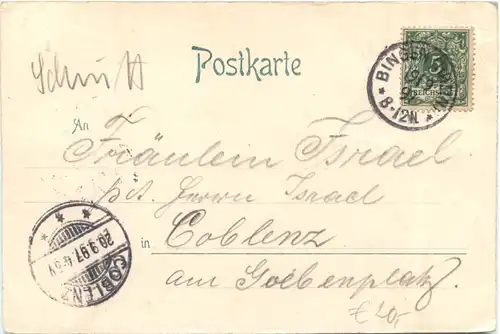 Postkarte
BINGEN
8-12N
5
REICHSPOST
An
Fräulein Israel
Herrn Israel
in Coblenz
am Goebenplatz
COBLENZ
20.9.97.
£ 40,-